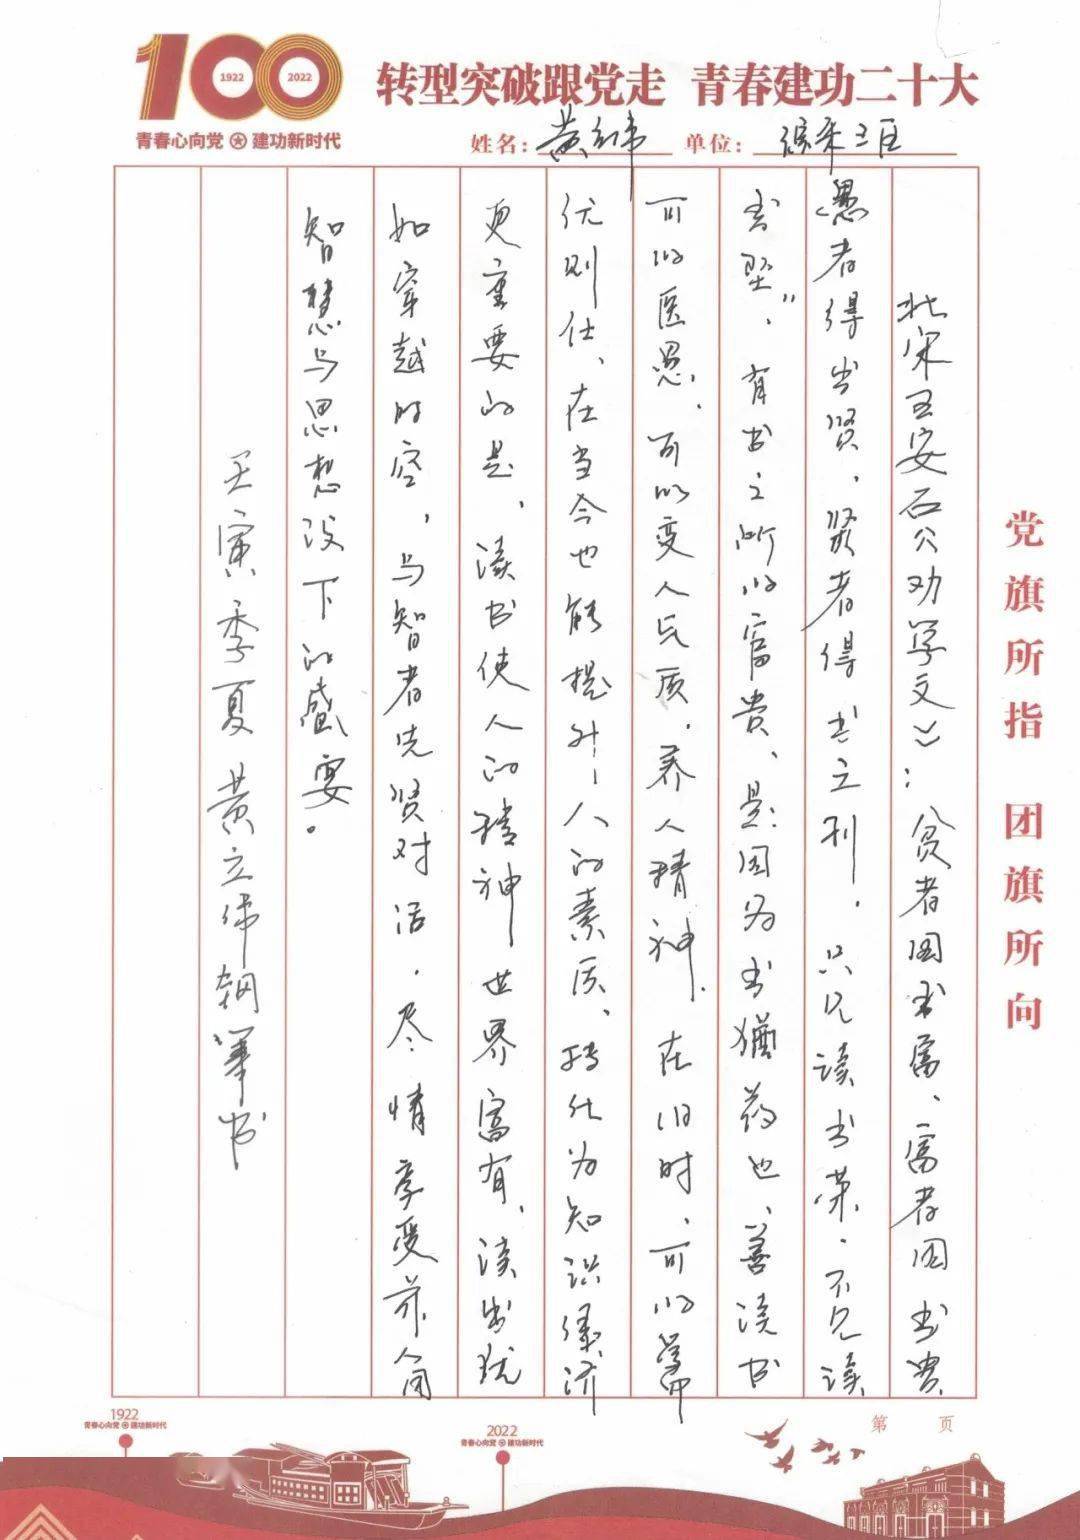 100
1922
2022
青春心向党 建功新时代
转型突破跟党走 青春建功二十大
姓名：黄立伟 单位：综采三区
北宋王安石公《劝学文》：贫者因书富、富者因书贵
愚者得书贤，贤者得书之利．只见读书荣．不见读
书坠”．有书之所以富贵、是因为书犹药也、善读书
可以医愚．可以变人气质．养人精神．在旧时、可以学而
优则仕、在当今也能提升人的素质、转化为知识经济
更重要的是、读书使人的精神世界富有、读书犹
如穿越时空，与智者先贤对话．尽情享受前人间
智慧与思想设下的盛宴。
壬寅季夏黄立伟钢笔书
党旗所指 团旗所向
第 页
1922
青春心向党 建功新时代
2022
青春心向党 建功新时代